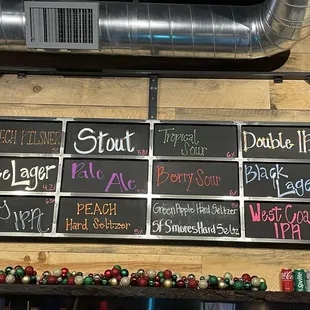 ECH PILSNER
4.2%
Stout
5%
Tropical
Sour
6%
Double IP
e Lager
Pale Ale
5%
Berry Sour
6%
Black
Lager
IPA
PEACH
Hard Seltzer
5%
Green Apple Hard Seltzer
S'mores Hard Seltz
West Coa
IPA